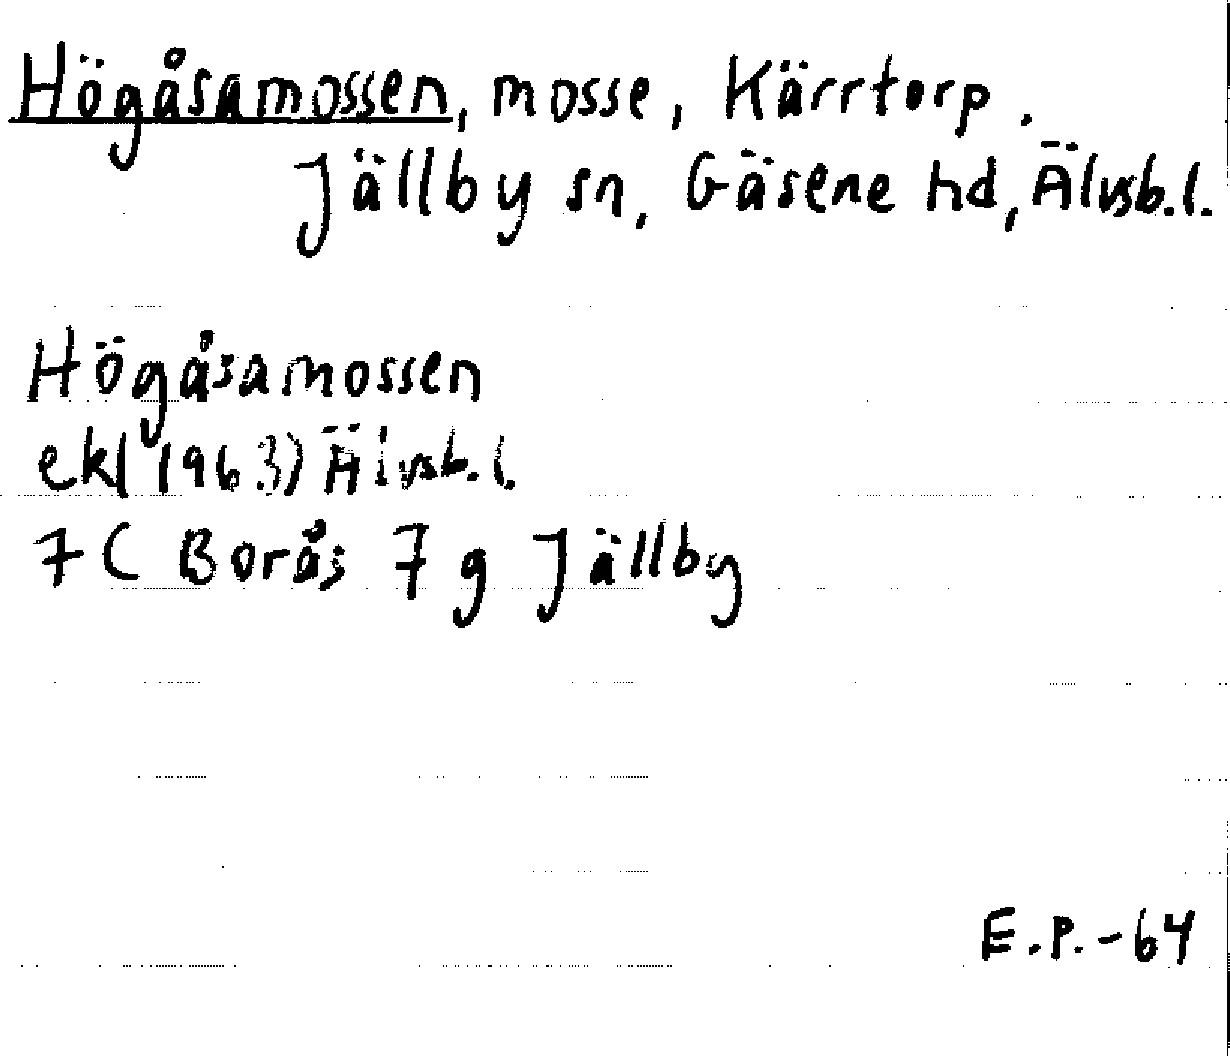 Högåsamossen, mosse, Kärrtorp.
Jällby sn, Gäsene hd, Älvsb.l.
Högåsamossen
ekl 1963) Älvsb.l.
7C Borås 7g Jällby
E.P.-64